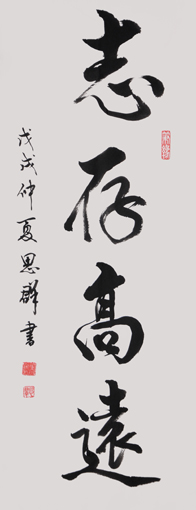 志存高遠
戊戌仲夏思群書